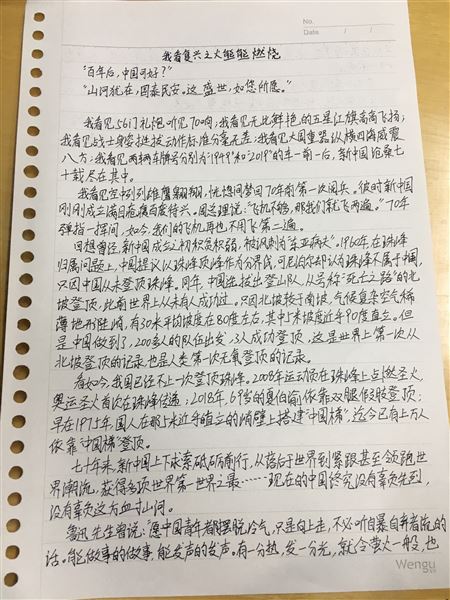 No.
Date / /
我看复兴之火熊熊燃烧
"百年后,中国可好?"
"山河犹在,国泰民安。这盛世,如您所愿。"
我看见56门礼炮听见70响;我看见无比鲜艳的五星红旗高高飞扬;
我看见战士身姿挺拔动作后准分毫无差;我看见大国重器纵横四海威震
八方;我看见两辆车牌号分别为"1949"和"2019"的车一前一后,新中国沧桑七
十载尽在其中。
我看见空中列列雄鹰翱翔,恍惚间梦回70年前第一次阅兵。彼时新中国
刚刚成立满目疮痍百废待兴。周总理说:"飞机不够,那我们就飞两遍。"70年
弹指一挥间,如今,我们的飞机再也不用飞第二遍。
回想曾经,新中国成立初积贫积弱,被讽刺为"东亚病夫"。1960年,在珠峰
归属问题上,中国提议以珠峰顶峰作为分界线,可尼泊尔却认为珠峰不属于中国,
只因中国从未登顶珠峰。同年,中国派出登山队,从号称"死亡之路"的北
坡登顶,此前世界上从未有人成功过。只因北坡较于南坡,气候复杂空气稀
薄地形陡峭,有30米平均坡度在80度左右,其中5米坡度近乎90度直立。但
是中国做到了,200多人的队伍出发,3人成功登顶,这是世界上第一次从
北坡登顶的记录,也是人类第一次无氧登顶的记录。
看如今,我国已经不止一次登顶珠峰。2008年运动员在珠峰上点燃圣火,
奥运圣火首次在珠峰传递;2018年,69岁的夏伯渝依靠双腿假肢登顶;
早在1975年,国人在那5米近乎直立的峭壁上搭建"中国梯",迄今已有上万人
依靠"中国梯"登顶。
七十年来,新中国上下求索砥砺前行,从落后于世界到紧跟甚至领跑世
界潮流,获得多项世界第一世界之最……现在的中国终究没有辜负先烈,
没有辜负这方血寸山河。
鲁迅先生曾说:"愿中国青年都摆脱冷气,只是向上走,不必听自暴自弃者流的
话。能做事的做事,能发声的发声。有一分热,发一分光,就令萤火一般,也
Wengu